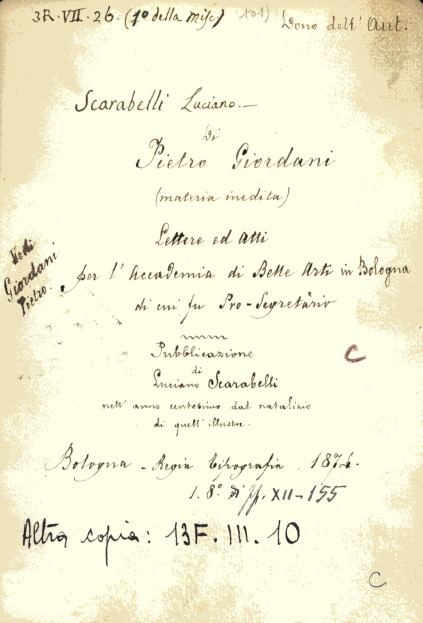 3R. VII. 26. (1º della misc) 101)
Dono dell' Aut.
Scarabelli Luciano. —
Di
Pietro Giordani
(materia inedita)
Lettere ed atti
per l' Accademia di Belle Arti in Bologna
di cui fu Pro-Segretario
Vedi
Giordani
Pietro.
Pubblicazione
di
Luciano Scarabelli
nell' anno centesimo dal natalizio
di quell' illustre.
C
Bologna - Regia Tipografia. 1874.
1. 8º di pp. XII-155
Altra copia: 13F. III. 10
C